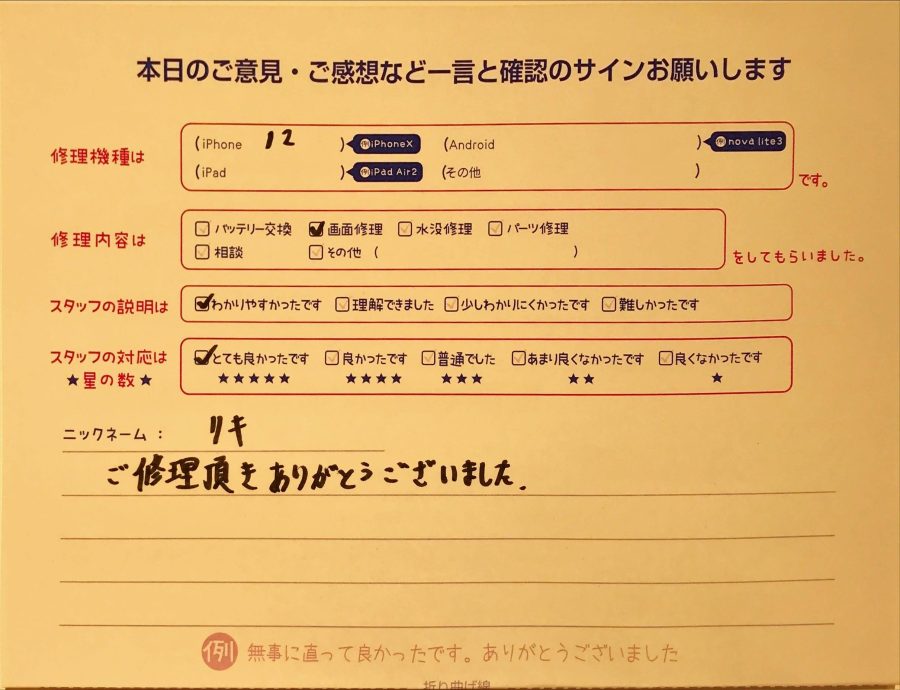 本日のご意見・ご感想など一言と確認のサインお願いします
修理機種は
(iPhone 12 ) 例iPhoneX (Android ) 例nova lite3
(iPad ) 例iPad Air2 (その他 )
です。
修理内容は
バッテリー交換 画面修理 水没修理 パーツ修理
相談 その他 ( )
をしてもらいました。
スタッフの説明は
わかりやすかったです 理解できました 少しわかりにくかったです 難しかったです
スタッフの対応は
★星の数★
とても良かったです 良かったです 普通でした あまり良くなかったです 良くなかったです
★★★★★ ★★★★ ★★★ ★★ ★
ニックネーム : リキ
ご修理頂きありがとうございました.
例 無事に直って良かったです。ありがとうございました
折り曲げ線